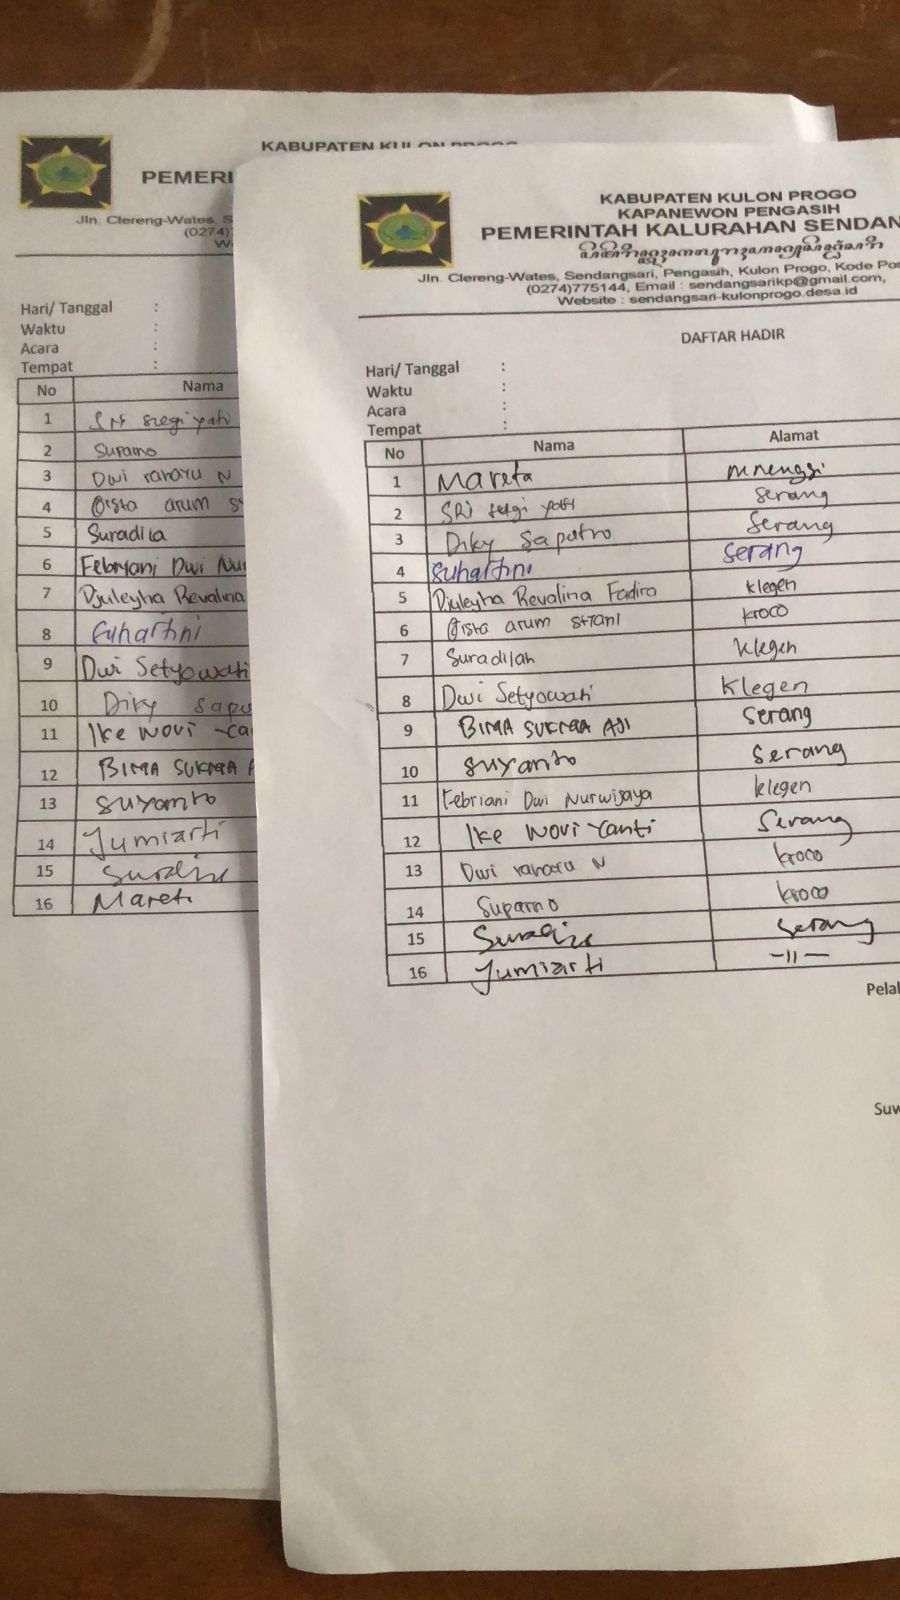 KABUPATEN KULON PROGO
PEMERI
Jln. Clereng-Wates, S
(0274)
Hari/ Tanggal :
Waktu :
Acara :
Tempat :
No Nama
1 Sri sregi yati
2 Suparno
3 Dwi raharu N
4 Gista arum s
5 Suradila
6 Febriani Dwi Nur
7 Djuleyha Revalina
8 Suhartini
9 Dwi Setyowati
10 Diky sapu
11 Ike Novi Ya
12 BIMA SUKMA A
13 suyanto
14 Yumiarti
15
16 Mareti
KABUPATEN KULON PROGO
KAPANEWON PENGASIH
PEMERINTAH KALURAHAN SENDAN
Jln. Clereng-Wates, Sendangsari, Pengasih, Kulon Progo, Kode Pos
(0274)775144, Email : sendangsarikp@gmail.com,
Website : sendangsari-kulonprogo.desa.id
DAFTAR HADIR
Hari/ Tanggal :
Waktu :
Acara :
Tempat :
No Nama Alamat
1 Mareta
2 SRi yati serang
3 Diky Saputro Serang
4 Suhartini Serang
5 Djuleyha Revalina Fadira klegen
6 Gista arum kroco
7 Suradilah Klegen
8 Dwi Setyowati Klegen
9 BIMA SUKMA AJI Serang
10 suyanto Serang
11 Febriani Dwi Nurwijaya klegen
12 Ike Novi Yanti Serang
13 Dwi raharu N kroco
14 Suparno kroco
15 Serang
16 Yumiarti -11-
Pelal
Suw